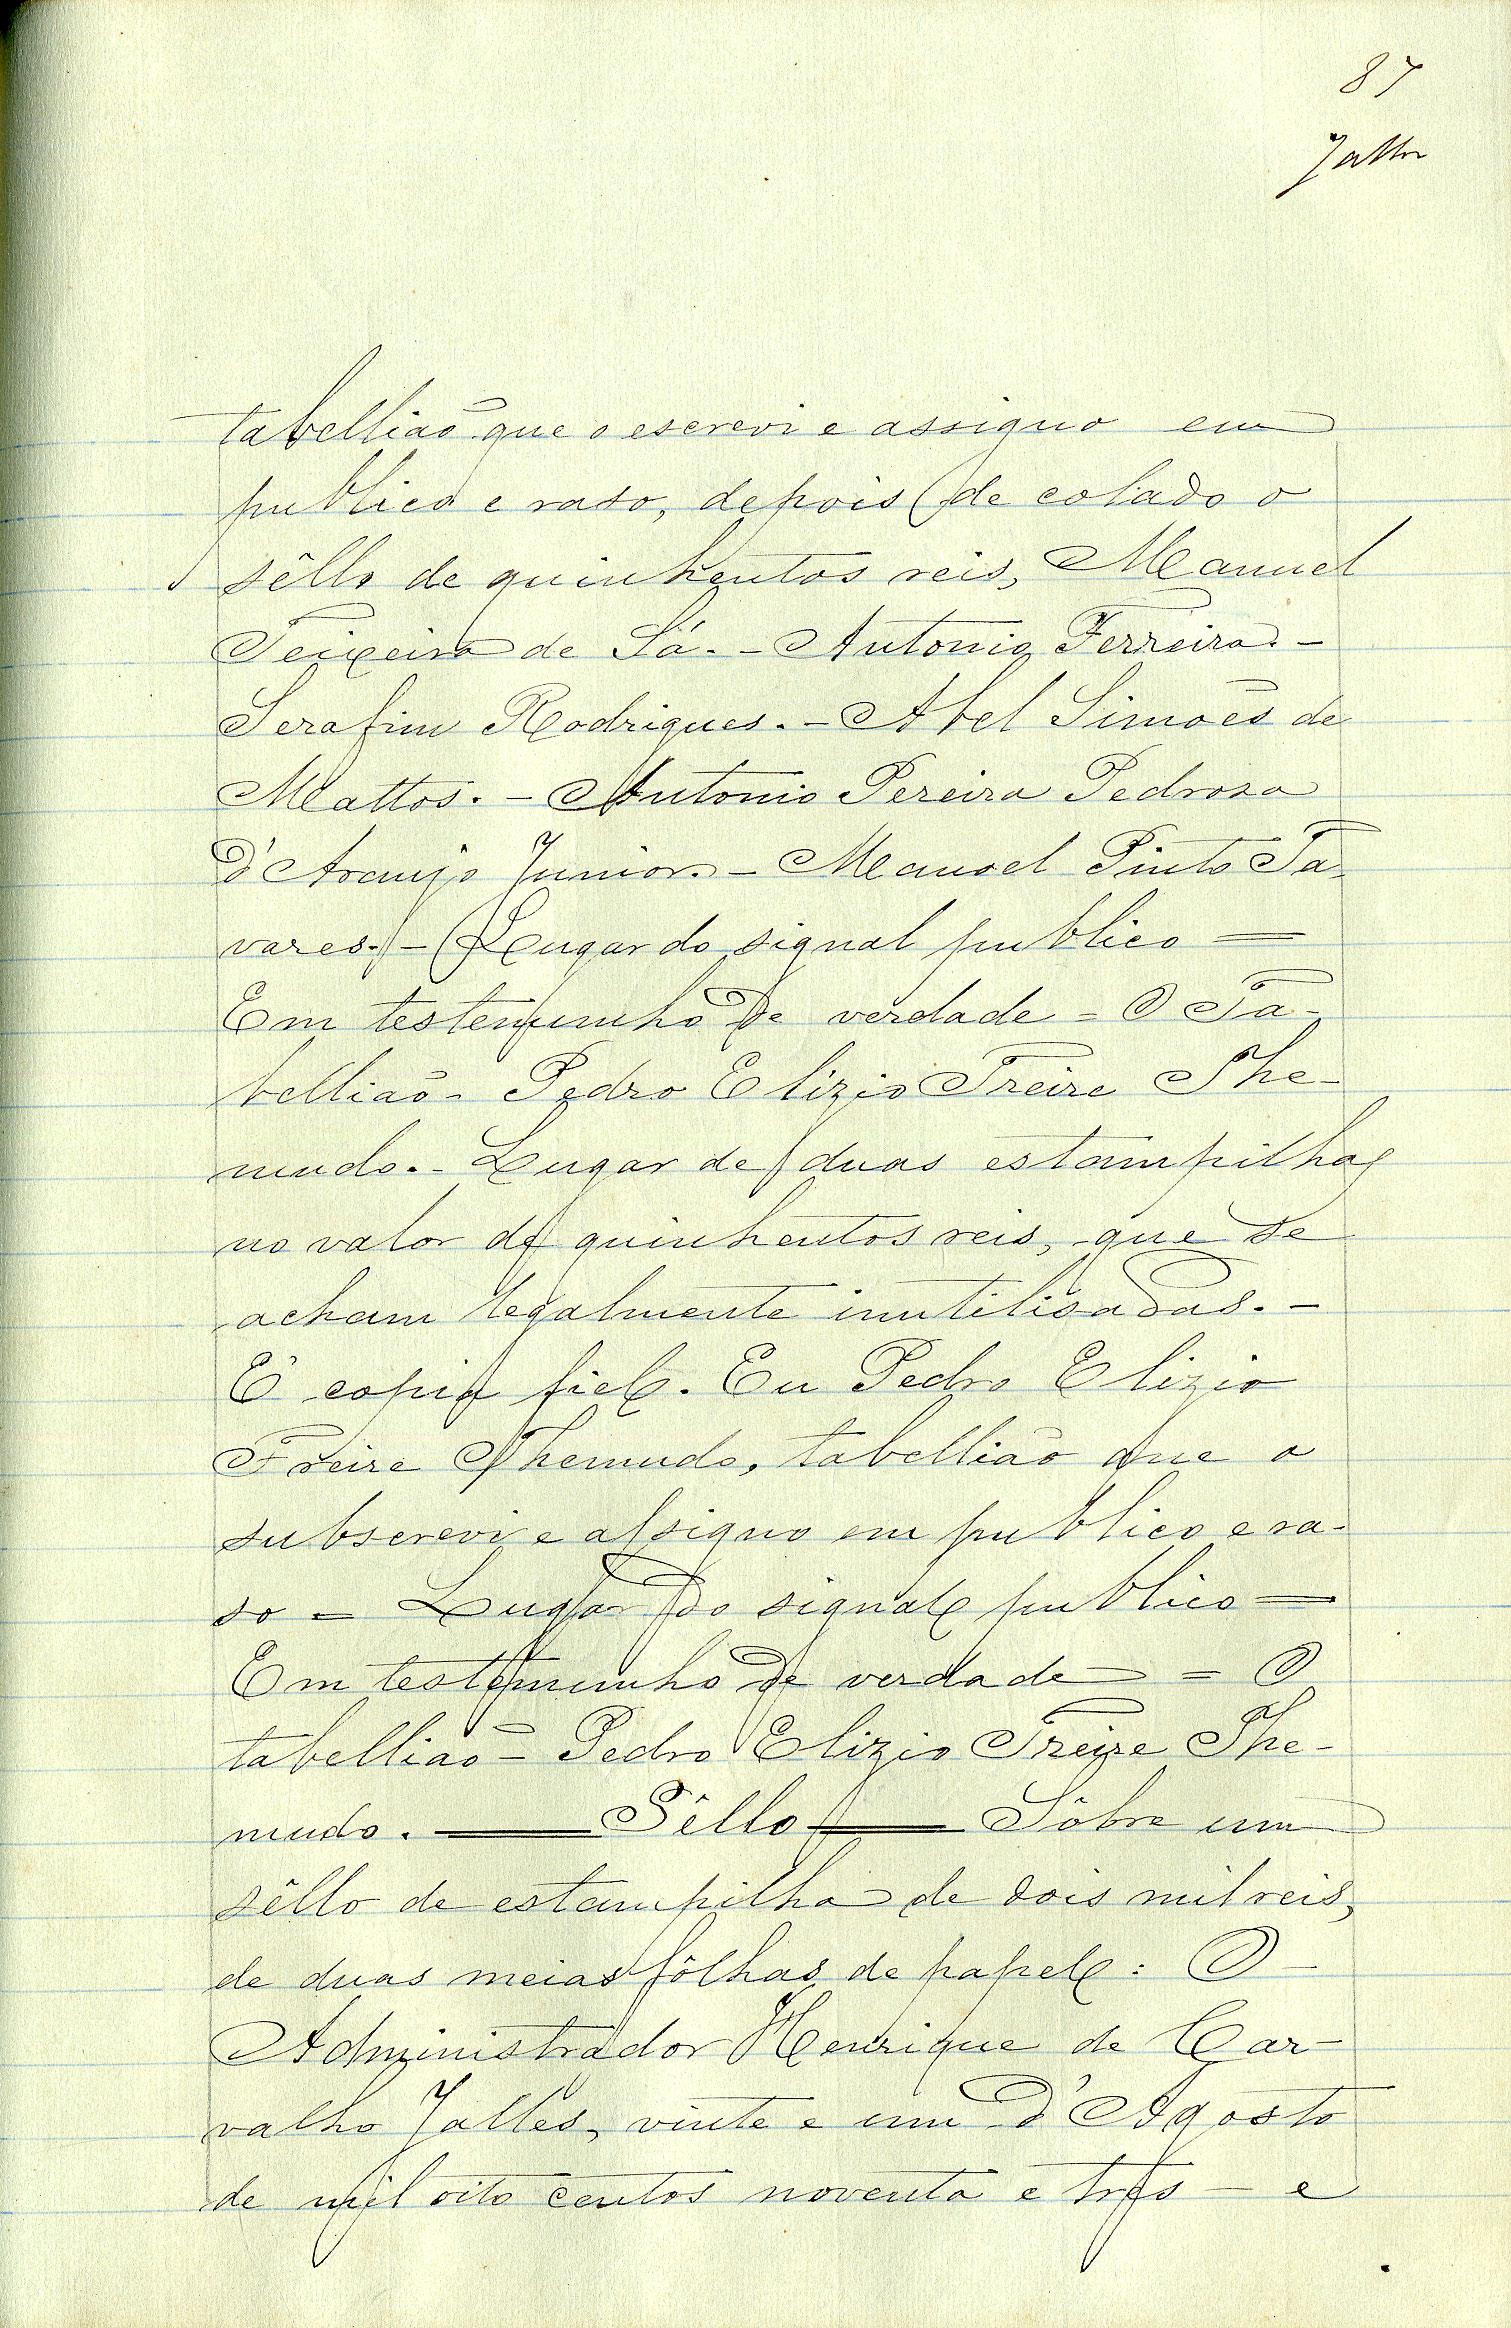 87
Jalles
tabellião que o escrevi e assigno em
publico e raso, depois de colado o
sêllo de quinhentos reis, Manuel
Teixeira de Sá. - Antonio Ferreira. -
Serafim Rodrigues. - Abel Simões de
Mattos. - Antonio Pereira Pedrosa
d'Araujo Junior. - Manoel Pinto Ta-
vares. - Lugar do signal publico =
Em testemunho de verdade = O Ta-
bellião - Pedro Elizio Freire The-
mudo. - Lugar de duas estampilhas
no valor de quinhentos reis, que se
acham legalmente inutilisadas. -
É copia fiel. Eu Pedro Elizio
Freire Themudo, tabellião que o
subscrevi e assigno em publico e ra-
so = Lugar do signal publico =
Em testemunho de verdade = O
tabellião - Pedro Elizio Freire The-
mudo. — Sêllo — Sôbre um
sêllo de estampilha de dois mil reis,
de duas meias fôlhas de papel: O -
Administrador Henrique de Car-
valho Jalles, vinte e um d'Agosto
de mil oito centos noventa e tres - e